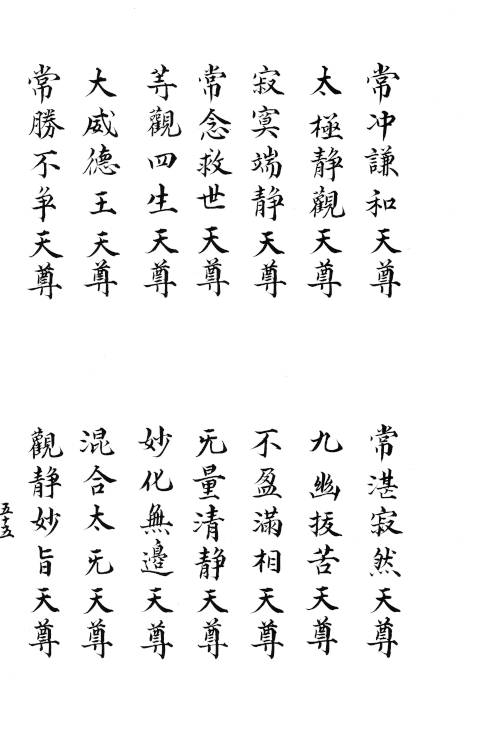 常冲謙和天尊
太極静觀天尊
寂寞端静天尊
常念救世天尊
等觀四生天尊
大威德王天尊
常勝不争天尊
常湛寂然天尊
九幽拔苦天尊
不盈滿相天尊
无量清静天尊
妙化無邊天尊
混合太无天尊
觀静妙旨天尊
五十五